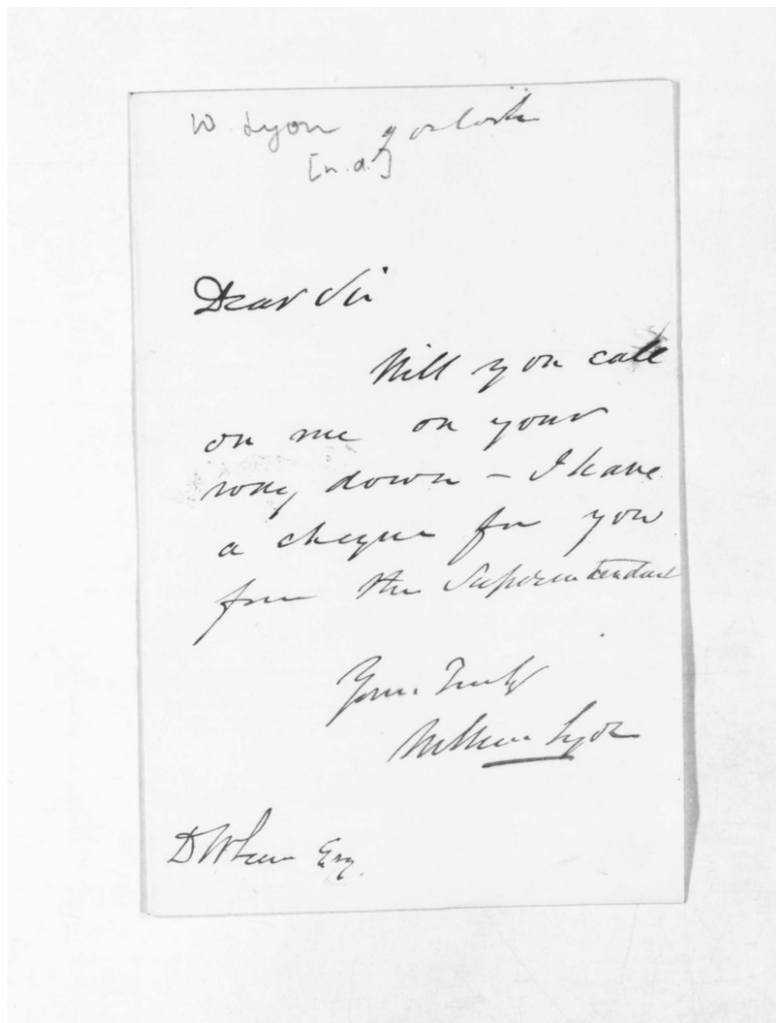 W. Lyon
[n.d.]
Dear Sir
Will you call
on me on your
way down – I have
a cheque for you
from the Superintendent
Yours Truly
William Lyon
D McLean Esq.